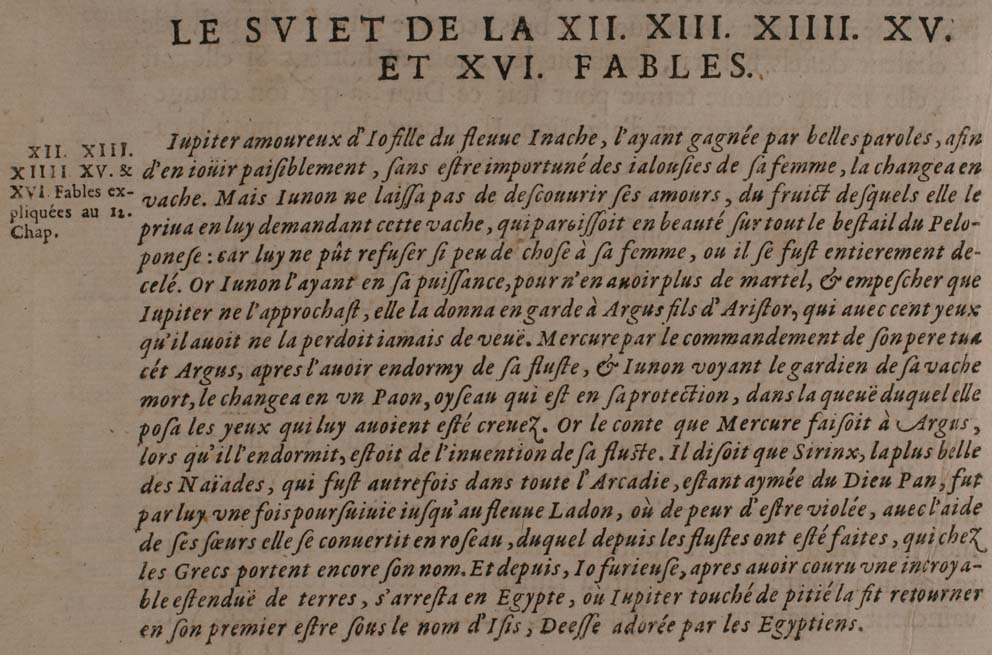 LE SVIET DE LA XII. XIII. XIIII. XV.
ET XVI. FABLES.
XII. XIII.
XIIII XV. &
XVI. Fables ex-
pliquées au 12.
Chap.
Iupiter amoureux d'Io fille du fleuue Inache, l'ayant gagnée par belles paroles, afin
d'en ioüir paiſiblement, ſans eſtre importuné des ialouſies de ſa femme, la changea en
vache. Mais Iunon ne laiſſa pas de deſcouurir ſes amours, du fruict deſquels elle le
priua en luy demandant cette vache, qui paroiſſoit en beauté ſur tout le beſtail du Pelo-
poneſe: car luy ne pût refuſer ſi peu de choſe à ſa femme, ou il ſe fuſt entierement de-
celé. Or Iunon l'ayant en ſa puiſſance, pour n'en auoir plus de martel, & empeſcher que
Iupiter ne l'approchaſt, elle la donna en garde à Argus fils d'Ariſtor, qui auec cent yeux
qu'il auoit ne la perdoit iamais de veuë. Mercure par le commandement de ſon pere tua
cét Argus, apres l'auoir endormy de ſa fluſte, & Iunon voyant le gardien de ſa vache
mort, le changea en vn Paon, oyſeau qui eſt en ſa protection, dans la queuë duquel elle
poſa les yeux qui luy auoient eſté creuez. Or le conte que Mercure faiſoit à Argus,
lors qu'il l'endormit, eſtoit de l'inuention de ſa fluſte. Il diſoit que Sirinx, la plus belle
des Naïades, qui fuſt autrefois dans toute l'Arcadie, eſtant aymée du Dieu Pan, fut
par luy vne fois pourſuiuie iuſqu'au fleuue Ladon, où de peur d'eſtre violée, auec l'aide
de ſes ſœurs elle ſe conuertit en roſeau, duquel depuis les fluſtes ont eſté faites, qui chez
les Grecs portent encore ſon nom. Et depuis, Io furieuſe, apres auoir couru vne incroya-
ble eſtenduë de terres, s'arreſta en Egypte, où Iupiter touché de pitié la fit retourner
en ſon premier eſtre ſous le nom d'Iſis, Deeſſe adorée par les Egyptiens.